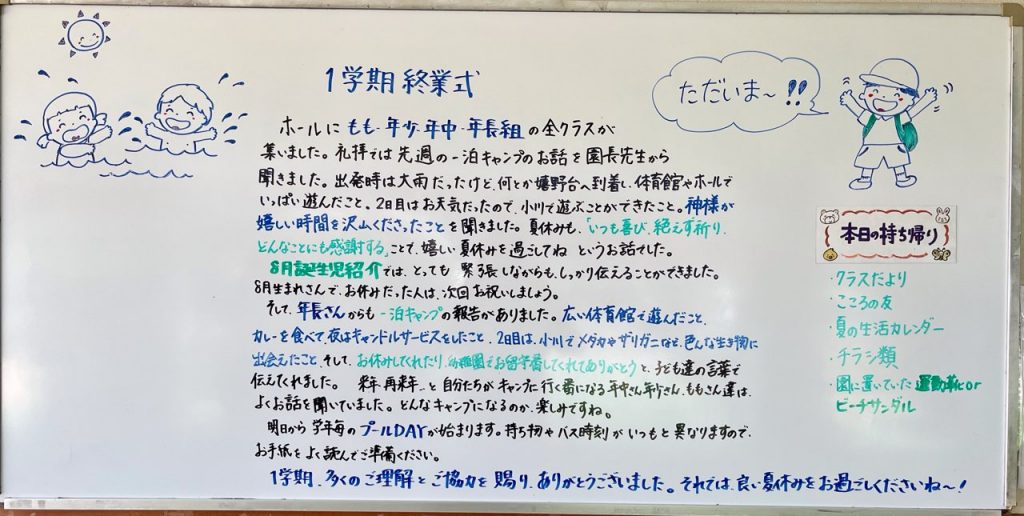 1学期 終業式
ホールに もも・年少・年中・年長組 の全クラスが
集いました。礼拝では 先週の一泊キャンプのお話を 園長先生から
聞きました。出発時は大雨だったけど、何とか嬉野台へ到着し、体育館やホールで
いっぱい遊んだこと。2日目はお天気だったので、小川で遊ぶことができたこと。神様が
嬉しい時間を沢山くださったことを聞きました。夏休みも、「いつも喜び、絶えず祈り、
どんなことにも感謝する」ことで、嬉しい夏休みを過ごしてね というお話でした。
8月誕生児紹介では、とっても 緊張しながらも、しっかり伝えることができました。
8月生まれさんで、お休みだった人は、次回お祝いしましょう。
そして、年長さんからも 一泊キャンプの報告がありました。広い体育館で遊んだこと、
カレーを食べて、夜はキャンドルサービスをしたこと、2日目は、小川でメダカやザリガニなど、色んな生き物に
出会えたこと、そして、お休みしてくれたり、幼稚園でお留守番してくれてありがとうと、子ども達の言葉で
伝えてくれました。 来年、再来年…と 自分たちが キャンプに行く番になる年中さん、年少さん、ももさん達は、
よくお話を聞いていました。どんなキャンプになるのか、楽しみですね。
明日から 学年毎の プールDAYが始まります。持ち物や バス時刻が いつもと 異なりますので、
お手紙を よく読んでご準備ください。
1学期、多くのご理解と ご協力を 賜り、ありがとうございました。それでは、良い夏休みをお過ごしくださいね〜!
ただいま〜!!
本日の持ち帰り
・クラスだより
・こころの友
・夏の生活カレンダー
・チラシ類
・園に置いていた 運動靴 or
ビーチサンダル